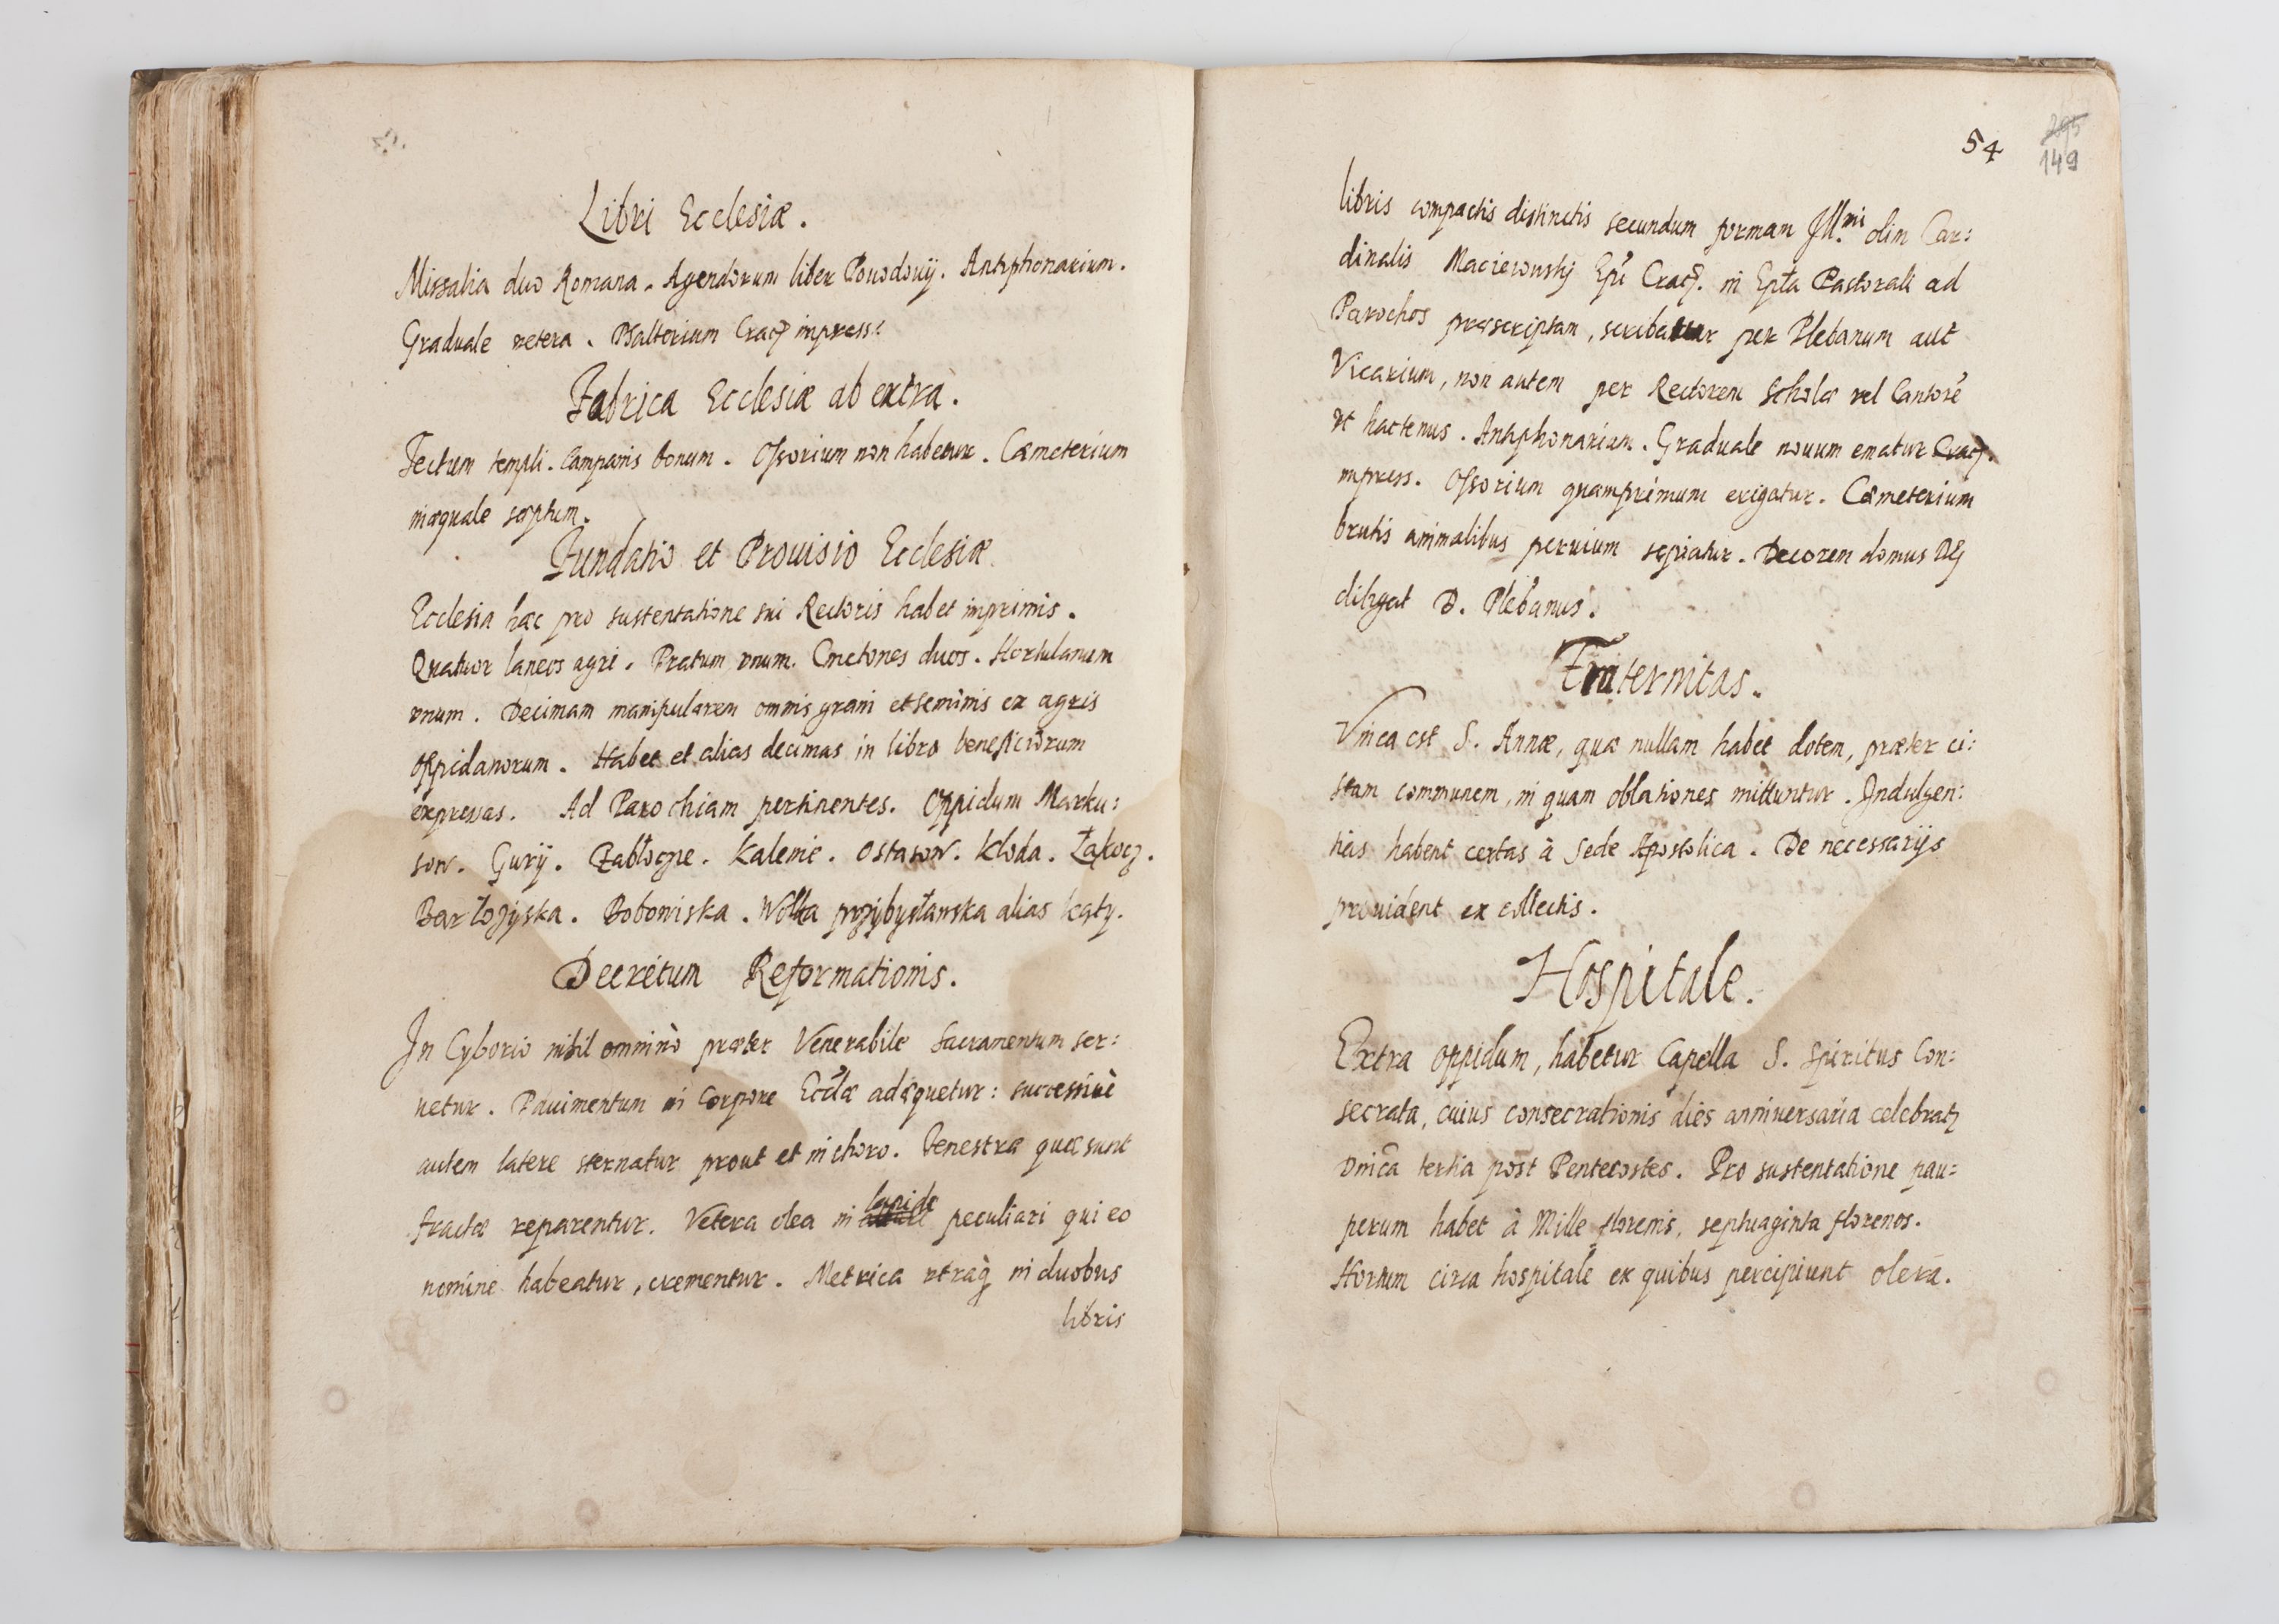 Libri Ecclesiæ.
Missalia duo Romana. Agendorum liber Powodovij. Antiphonarium.
Graduale vetera. Psalterium Crac. impress:
Fabrica Ecclesiæ ab extra.
Tectum templi. Campanis bonum. Ossorium non habetur. Cæmeterium
inæquale sæptum.
Fundatio et Prouisio Ecclesiæ
Ecclesia hæc pro sustentatione sui Rectoris habet inprimis.
Quatuor laneos agri. Pratum vnum. Cmetones duos. Hortulanum
vnum. Decimam manipularem omnis grani et seminis ex agris
oppidanorum. Habet et alias decimas in libro beneficiorum
expressas. Ad Parochiam pertinentes. Oppidum Marku:
sow. Gurÿ. Zabłocze. Kalenie. Ostasow. Kłoda. Łąkocz.
Barłożyska. Bobowiska. Wolka przybysławska alias kąty.
Decretum Reformationis.
In Cyborio nihil omninò præter Venerabile Sacramentum ser:
uetur. Pauimentum in Corpore Eccľæ adæquetur: successiuè
autem latere sternatur prout et in choro. Fenestræ quæ sunt
fractæ reparentur. Vetera olea in lapide peculiari qui eo
nomine habeatur, crementur. Metrica vtraq in duobus
libris
54
295
149
libris compactis distinctis secundum formam Ill.mi olim Car:
dinalis Maciewouskj Epi Crac. in Epľa Pastorali ad
Parochos præscriptam, scribatur per Plebanum aut
Vicarium, non autem per Rectorem Scholæ vel Cantorē
vt hactenus. Antiphonarium. Graduale nouum ematur Crac.
impress. Ossorium quamprimum erigatur. Cæmeterium
brutis animalibus peruium sepiatur. Decorem domus DEJ
diligat D. Plebanus.
Fraternitas.
Vnica est S. Annæ, quæ nullam habet dotem, præter ci:
stam communem, in quam oblationes mittuntur. Indulgen:
tias habent certas à Sede Apostolica. De necessarijs
prouident ex collectis.
Hospitale.
Extra oppidum, habetur Capella S. Spiritus Con:
secrata, cuius consecrationis dies anniuersaria celebratʒ
Dnica tertia post Pentecostes. Pro sustentatione pau:
perum habet à Mille florenis, septuaginta florenos.
Hortum circa hospitale ex quibus percipiunt olera.